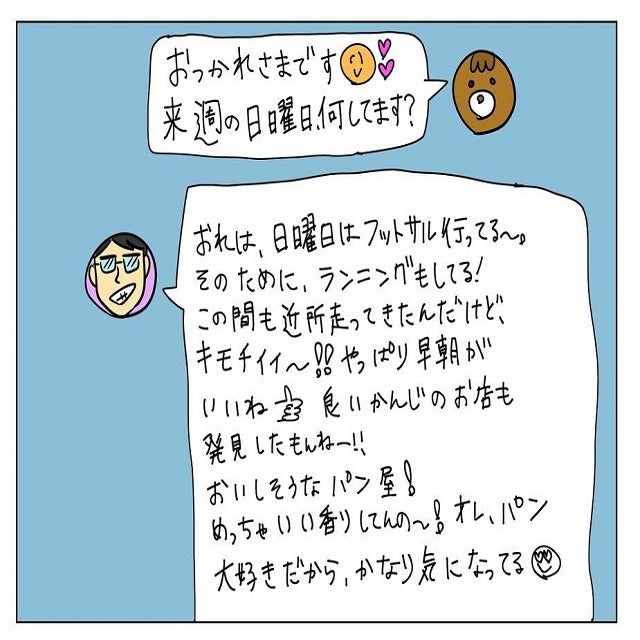 おつかれさまです
来週の日曜日、何してます?
おれは、日曜日はフットサル行ってる〜。
そのために、ランニングもしてる!
この間も近所走ってきたんだけど、
キモチイイ〜!!やっぱり早朝が
いいね 良いかんじのお店も
発見したもんねー!!
おいしそうなパン屋!
めっちゃいい香りしてんの〜!オレ、パン
大好きだから、かなり気になってる